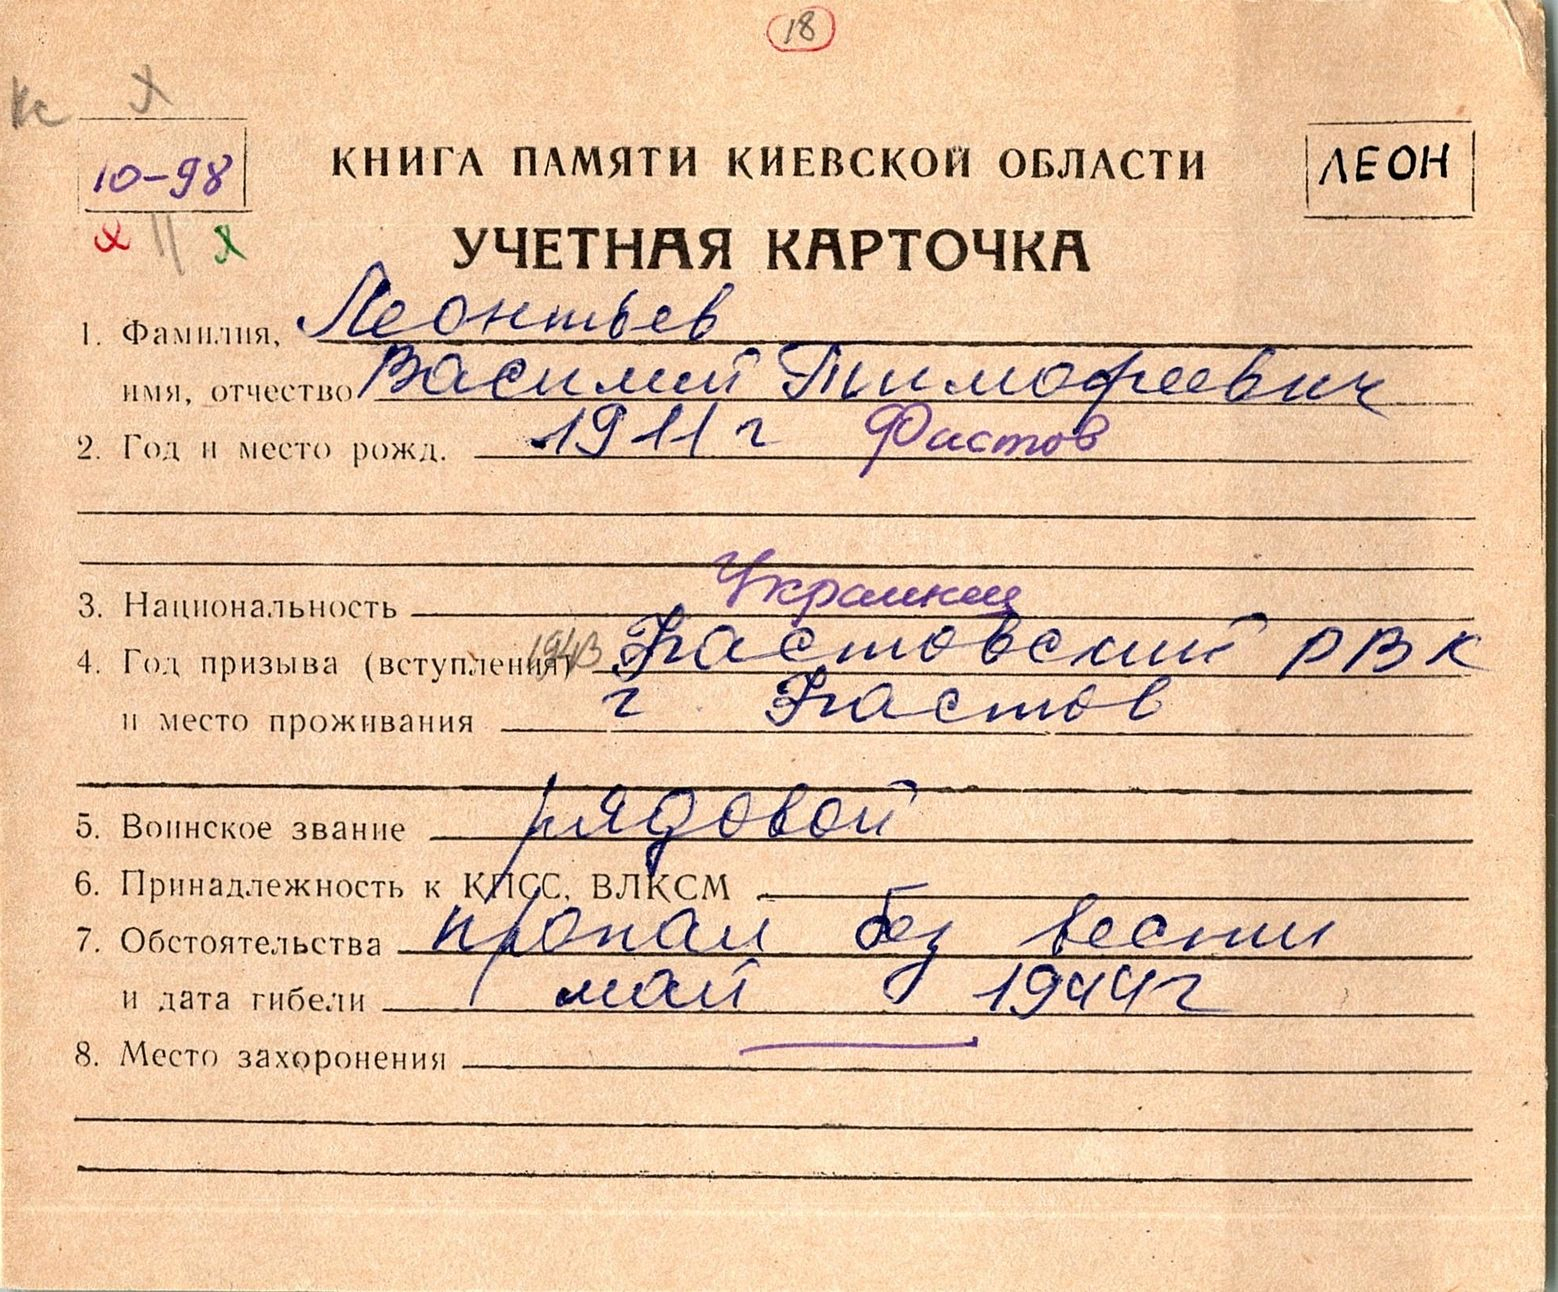 18
Кс Х
10-98
КНИГА ПАМЯТИ КИЕВСКОЙ ОБЛАСТИ
ЛЕОН
х х
УЧЕТНАЯ КАРТОЧКА
1. Фамилия, Леонтьев
имя, отчество Василий Тимофеевич
2. Год и место рожд. 1911 г Фастов
3. Национальность Украинец
4. Год призыва (вступления) 1943 Фастовский РВК
и место проживания г Фастов
5. Воинское звание рядовой
6. Принадлежность к КПСС, ВЛКСМ
7. Обстоятельства пропал без вести
и дата гибели май 1944г
8. Место захоронения